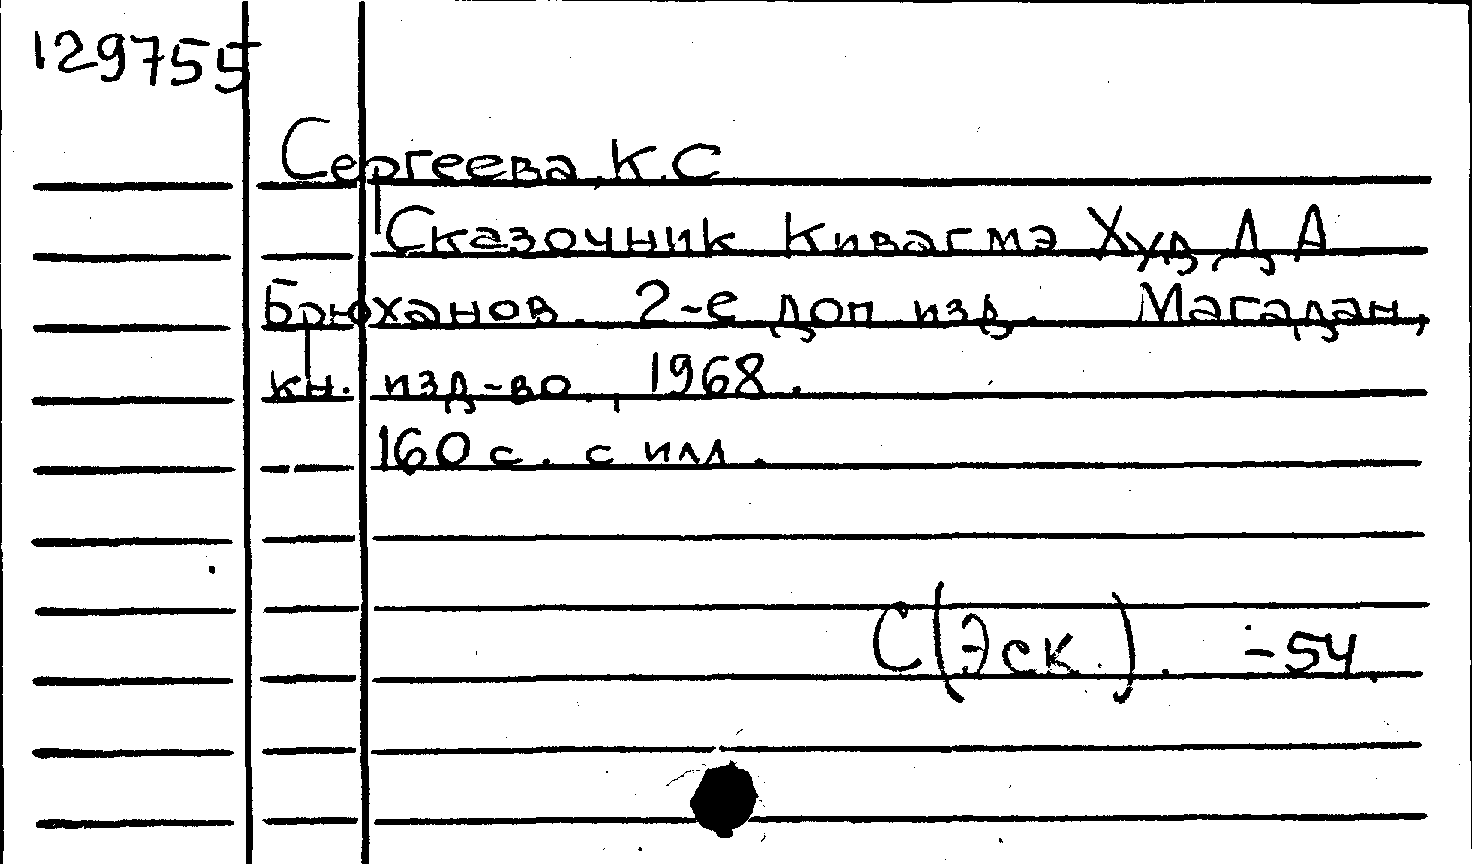 129755
Сергеева, К.С
Сказочник Кивагмэ Худ Д А
Брюханов. 2-е доп изд. Магадан,
кн. изд-во., 1968.
160 с. с илл.
С(Эск.). -54.